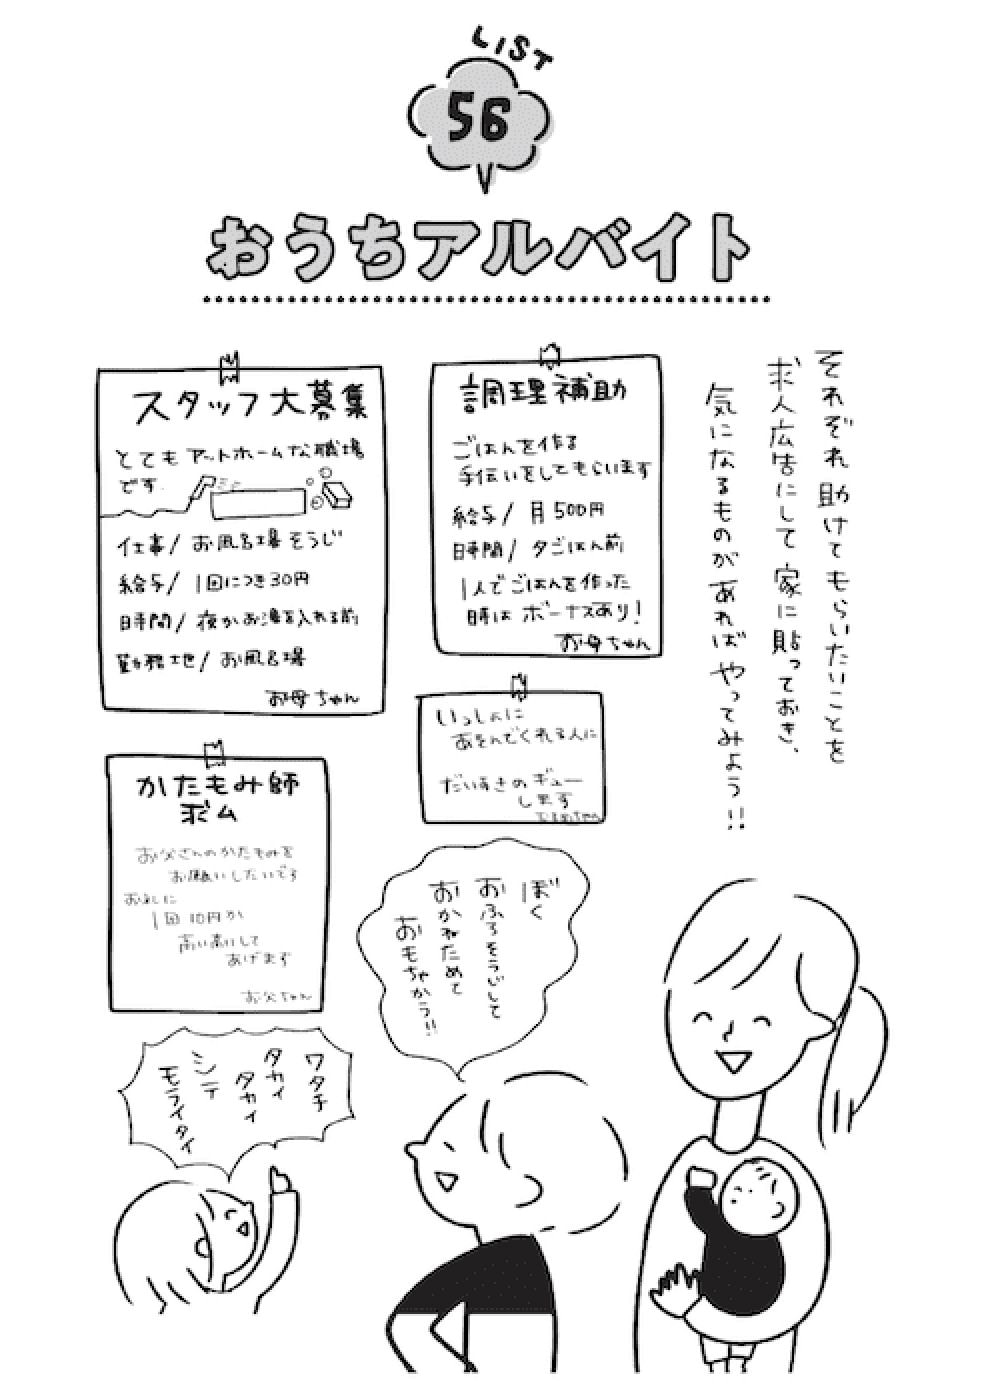 LIST
56
おうちアルバイト
それぞれ助けてもらいたいことを
求人広告にして家に貼っておき、
気になるものがあればやってみよう!!
調理補助
ごはんを作る
手伝いをしてもらいます
給与/月500円
時間/夕ごはん前
1人でごはんを作った
時はボーナスあり!
お母ちゃん
スタッフ大募集
とてもアットホームな職場
です
仕事/お風呂場そうじ
給与/1回につき30円
時間/夜かお湯を入れる前
勤務地/お風呂場
お母ちゃん
いっしょに
あそんでくれる人に
だいすきのギュー
します
かたもみ師
求ム
お父さんのかたもみを
お願いしたいです
お礼に
1回10円か
高い高いして
あげます
お父ちゃん
ぼく
おふろそうじして
おかねためて
おもちゃかう!!
ワタチ
タカイ
タカイ
シテ
モライタイ